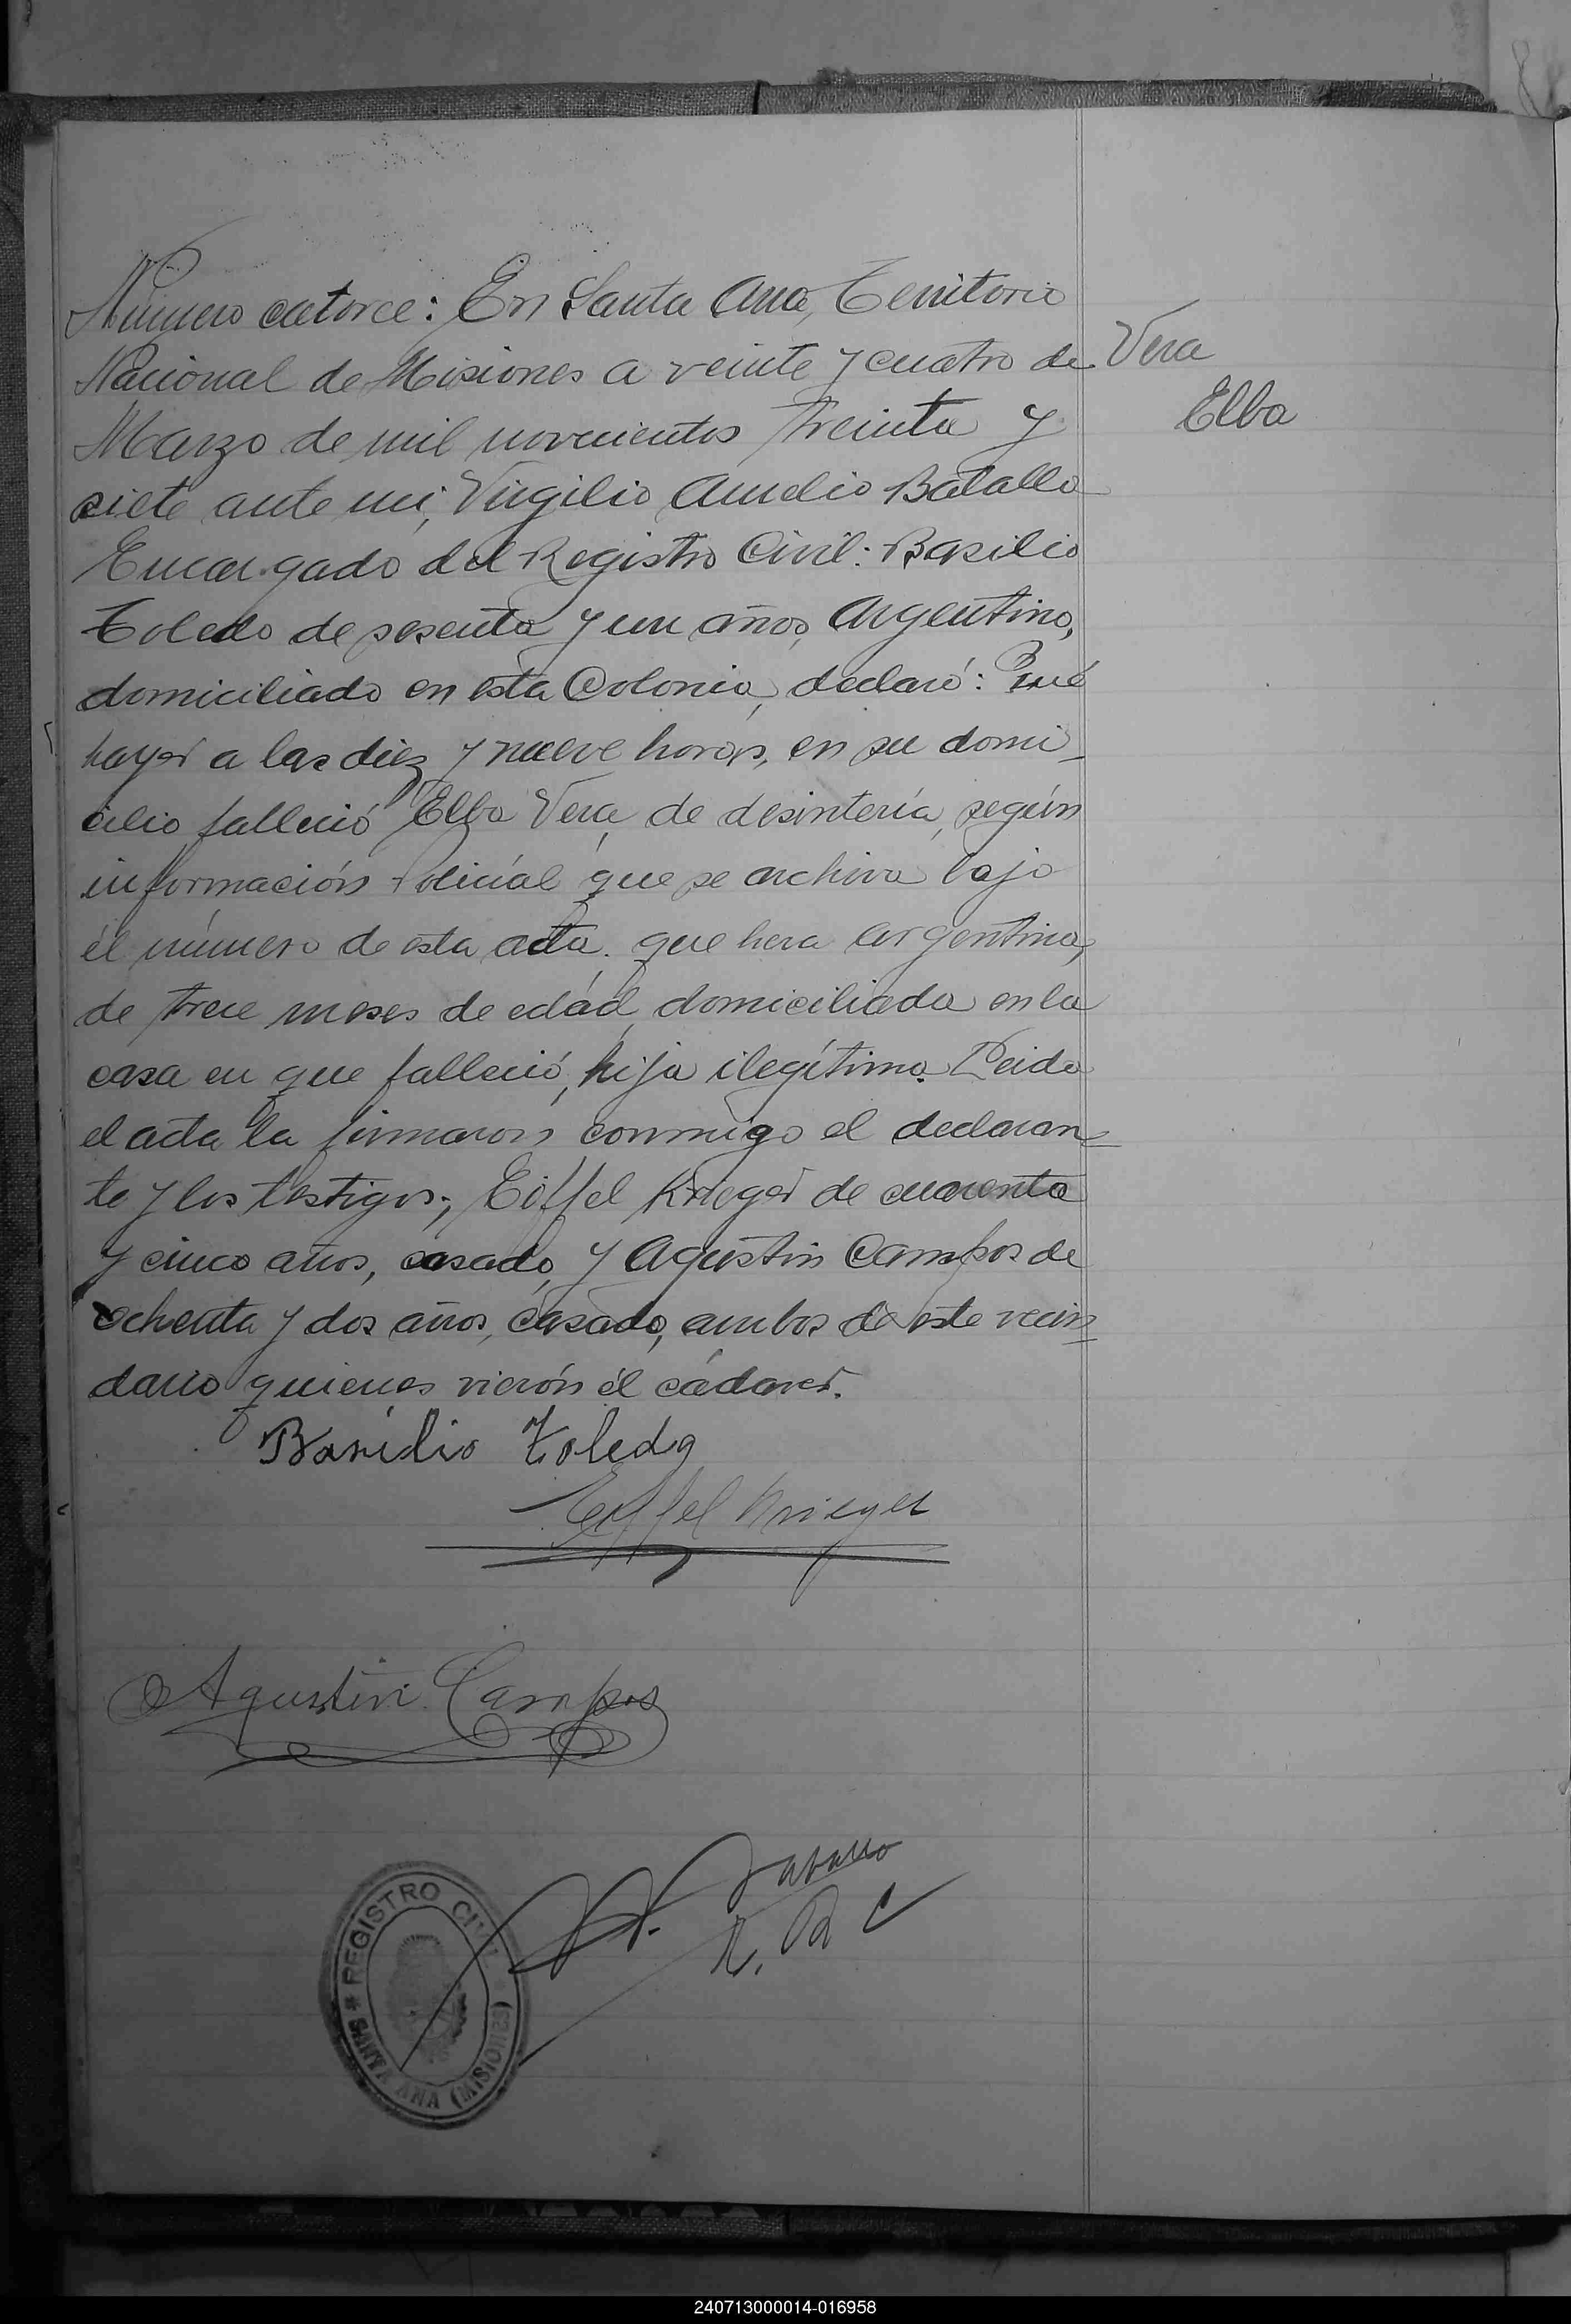 Número catorce: En Santa Ana, Territorio
Nacional de Misiones a veinte y cuatro de
Vera
Elba
Marzo de mil novecientos treinta y
siete ante mi, Virgilio Aurelio Batallo
Encargado del Registro Civil: Basilio
Toledo de sesenta y un años, Argentino,
domiciliado en esta Colonia, declaró: Qué
hayer a las diez y nueve horas, en su domi-
cilio falleció Elba Vera, de desintería, según
información Policial que se archiva bajo
él número de esta acta. que hera argentina,
de trece meses de edád, domiciliada en la
casa en que falleció, hija ilegítima. Leida
el acta la firmaron conmigo el declaran-
te y los testigos; Eiffel Krieger de cuarenta
y cinco años, casado, y Agustin Campos de
ochenta y dos años, casado, ambos de este vecin-
dario quienes vierón él cádaver.
Basilio Toledo
Eiffel Krieger
Agustin Campos
REGISTRO CIVIL
SANTA ANA (MISIONES)
240713000014-016958